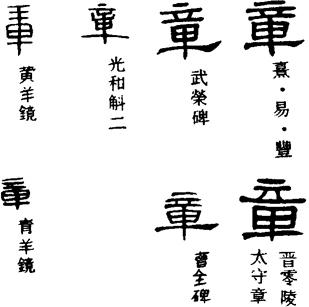 章
熹・易・豐
章
武榮碑
章
光和斛二
章
黄羊鏡
章
晋零陵
太守章
章
曹全碑
章
青羊鏡